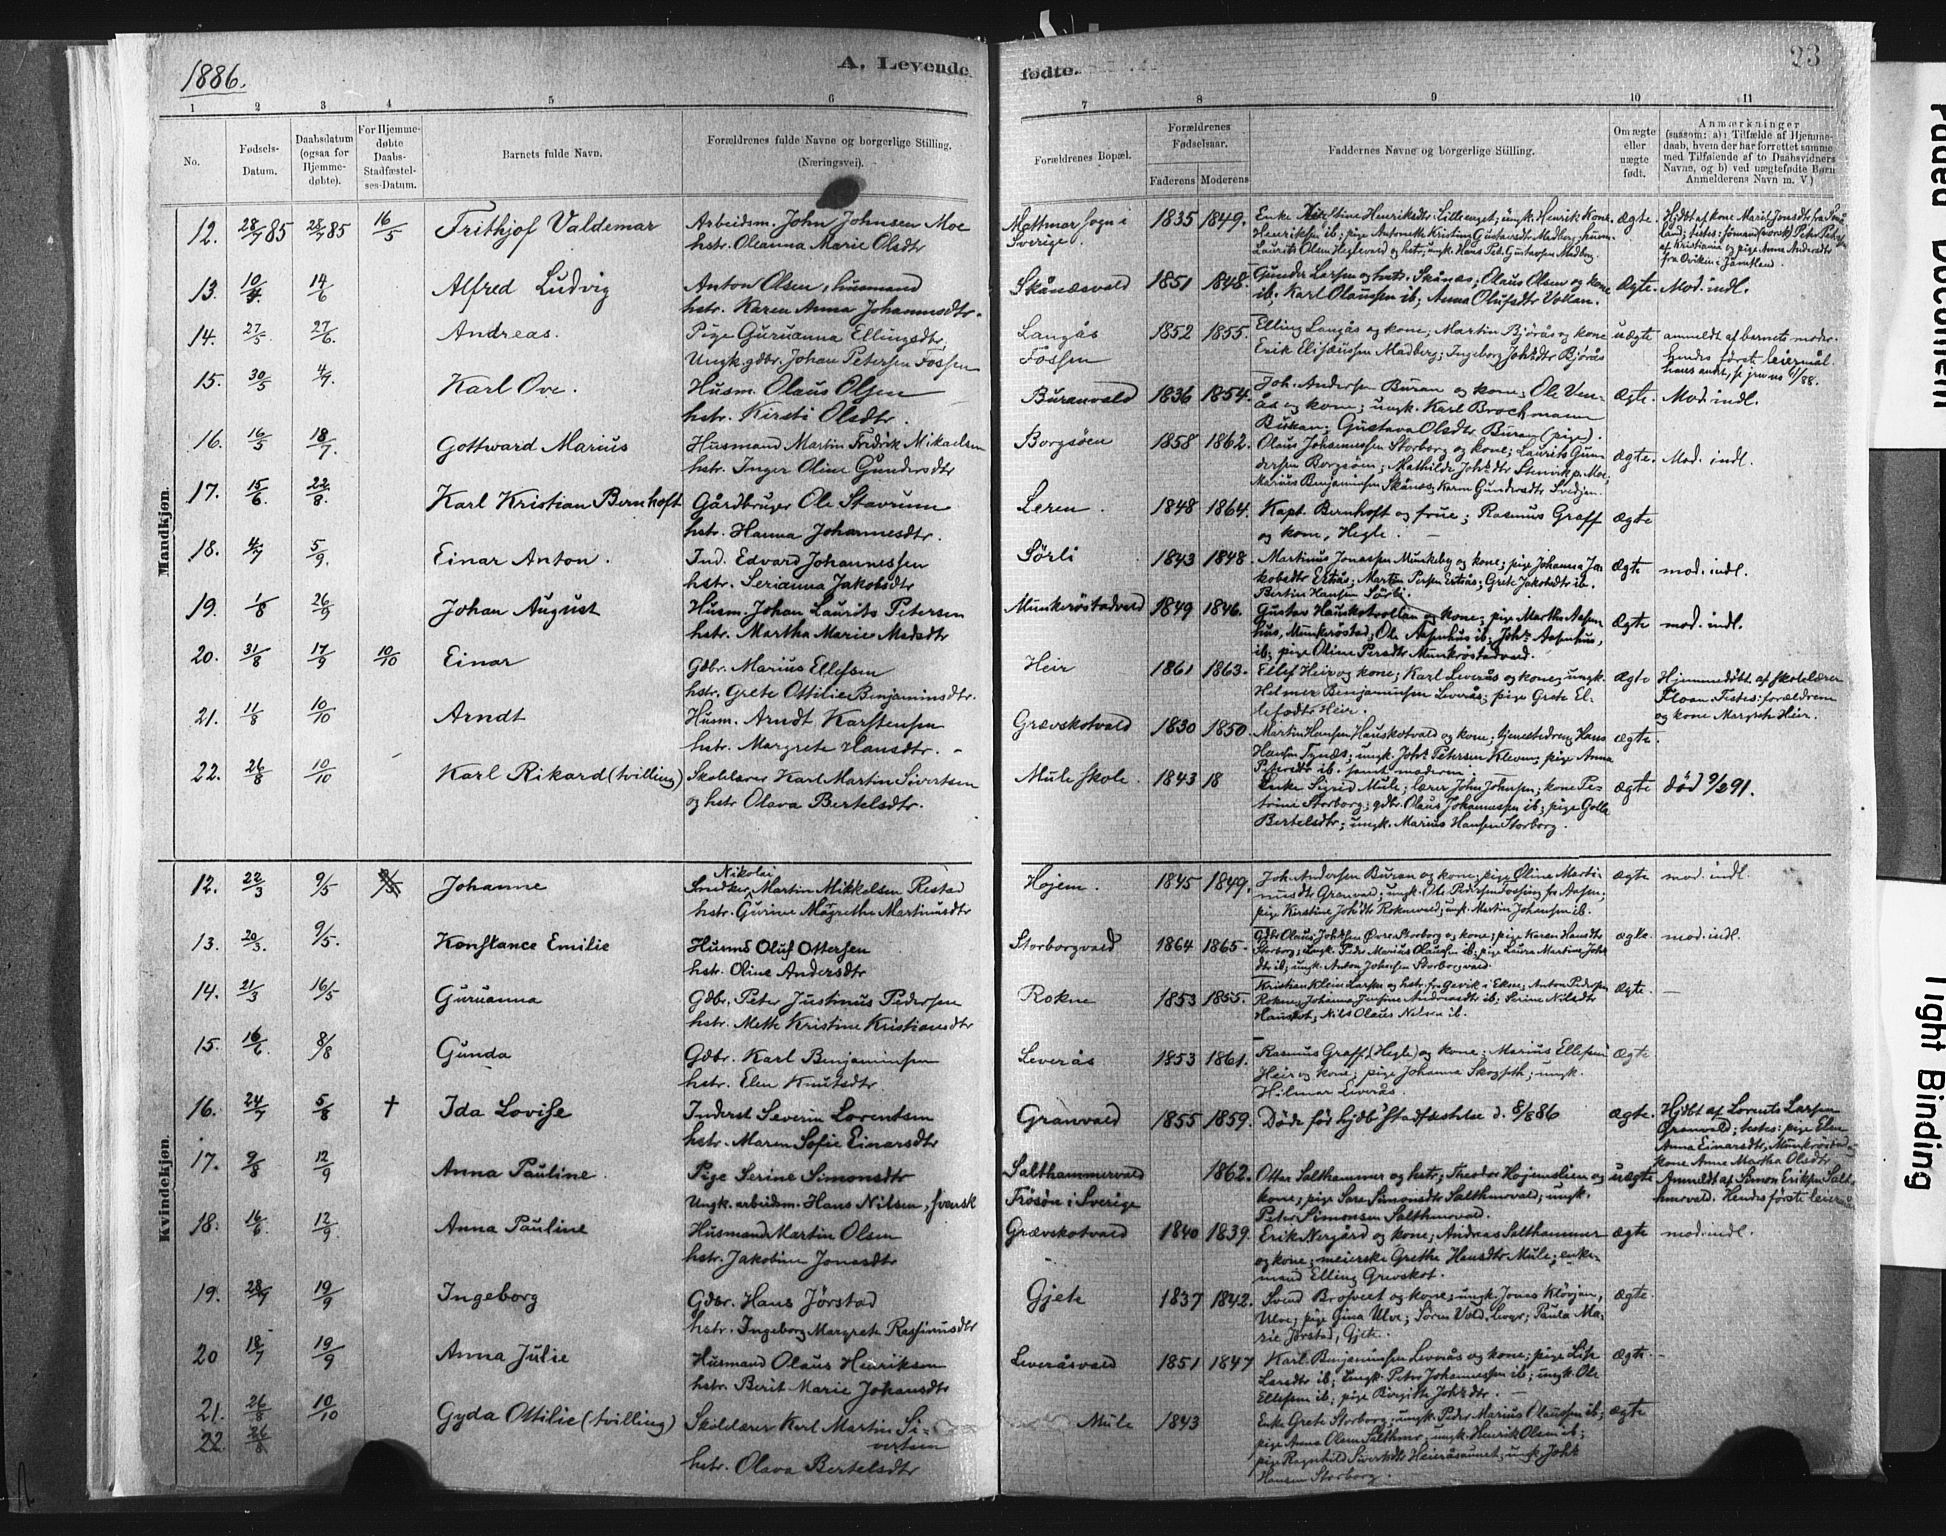 1886.
A. Levende
fødte.
23
1 2 3 4 5 6 7 8 9 10 11
No.
Fødsels-
Datum.
Daabsdatum
(ogsaa for
Hjemme-
døbte).
For Hjemme-
døbte
Daabs-
Stadfæstel-
ses-Datum.
Barnets fulde Navn.
Forældrenes fulde Navne og borgerlige Stilling.
(Næringsvei).
Forældrenes Bopæl.
Forældrenes
Fødselsaar.
Faderens Moderens
Faddernes Navne og borgerlige Stilling.
Om ægte
eller
uægte
født.
Anmærkninger
(saasom: a) i Tilfælde af Hjemme-
daab, hvem der har forrettet samme
med Tilføiende af to Daabsvidners
Navne, og b) ved uægtefødte Børn
Anmelderens Navn m. V.)
Mandkjøn.
12. 28/7 85 28/7 85 16/5 Frithjof Valdemar Arbeidsm. John Johnsen Moe
hstr. Oleanna Marie Olsdtr
Mattmar sogn i
Sverige
1835 1849. ægte.
13. 10/4 14/6 Alfred Ludvig Anton Olsen, husmand
hstr. Karen Anna Johannesdtr.
Skånæsvald 1851 1848. Gunder Larsen og hstr. Skånæs; Olaus Olsen og kone
ib. Karl Olaussen ib; Anna Olufsdtr Vollan. Ægte. Mod. indl.
14. 27/5 27/6 Andreas. Pige Guruanna Ellingsdtr
Ungk. gdbr. Johan Petersen Fossen
Langås
Fossen
1852 1855. Elling Langås og kone; Martin Bjørås og kone
Erik Elisæussen Madberg; Ingeborg Johsdtr Bjørås
uægte anmeldt af barnets moder.
hendes første leiermål
15. 30/5 4/7 Karl Ove. Husm. Olaus Olsen
hstr. Kirsti Olsdtr.
Buranvald 1836 1854. Joh. Andersen Buran og kone; Ole Ven-
ås og kone; ungk. Karl Brockmann
Buran; Gustava Olsdtr Buran (pige).
Ægte. Mod. indl.
16. 16/5 18/7. Gottward Marius Husmand Martin Fredrik Mikaelsen
hstr. Inger Oline Gundersdtr
Borgsøen 1858 1862. Olaus Johannessen Storborg og kone; Laurits Gun-
dersen Borgsøen; Mathilde Johsdtr
Marius Benjaminsen Skånæs; Karen Gundersdtr
ægte. Mod. indl.
17. 15/6. 22/8. Karl Kristian Bernhoft Gårdbruger Ole Stavrum
hstr. Hanna Johannesdtr.
Leren. 1848 1864. Kapt. Bernhoft og frue; Rasmus Graff
og kone, Hegle.
ægte
18. 4/7 5/9. Einar Anton. Ind. Edvard Johannessen
hstr. Serianna Jakobsdtr
Sørli 1843 1848. Martinus Jonassen Munkeby og kone; pige Johanna Ja-
kobsdtr Ertsås; Martin Persen Ertsås; Grete Jakobsdtr ib.
Bertin Hansen Sørli.
Ægte mod. indl.
19. 1/8 26/9 Johan August Husm. Johan Laurits Petersen
hstr. Martha Marie Madsdtr
Munkerøstadvald 1849 1846. Gustav Hauskotvollan og kone; pige Martha Aasen-
hus, Munkerøstad; Ole Aasenhus ib; Johs Aasenhus,
ib; pige Oline Persdtr Munkrøstadvald.
Ægte mod. indl.
20. 31/8 17/9 10/10 Einar Gdbr. Marius Ellefsen
hstr. Grete Ottilie Benjaminsdtr.
Heir 1861 1863. Ellef Heir og kone; Karl Leverås og kone; ungk.
Helmer Benjaminsen Leverås; pige Grete El-
lefsdtr Heir.
ægte Hjemmedøbt af skolelærer
Floan. Testes: forældrene
og kone Margreth Heir.
21. 11/8 10/10 Arndt Husm. Arndt Karstensen
hstr. Margrete Hansdtr.
Grævskotvald 1830 1850. Martin Hansen Hauskotvald og kone; tjenestedreng Hans
Hansen Tynæs; ungk. Johs Petersen Kleven; pige Anna
Petersdtr ib. samt moderen.
ægte.
22. 26/8 10/10 Karl Rikard (tvilling) Skolelærer Karl Martin Sivertsen
og hstr Olava Bertelsdtr.
Mule skole. 1843 18 Enke Sigrid Mule; lærer John Johnsen; kone Pe-
trine Storborg; gdbr. Olaus Johannessen ib; pige Golla
Bertelsdtr; ungk. Marius Hansen Storborg.
ægte død 9/2 91.
Kvindekjøn.
12. 22/3 9/5 Johanne Nikolai
Snedker Martin Mikkelsen Restad
hstr. Gurine Magrethe Martinusdtr
Højem. 1845 1849. Joh. Andersen Buran og kone; pige Oline Marti-
nusdtr Granvald; ungk. Ole Pedersen Fossing fr Aasen;
pige Kirstine Johsdtr Roknevald; ungk. Martin Johansen ib.
ægte mod. indl.
13. 20/3. 9/5. Konstance Emilie Husmd Oluf Ottersen
hstr. Oline Andersdtr
Storborgvald 1864 1865. Gdbr Olaus Johssen Øvre Storborg og kone; pige Karen Hansdtr
Storborg; ungk. Peder Marius Olaussen ib; pige Laura Martine Johs
dtr ib; ungk. Anton Johnsen Storborgvald.
ægte. mod. indl.
14. 21/3 16/5 Guruanna Gdbr. Peter Justinus Pedersen
hstr. Mette Kristine Kristiansdtr
Rokne 1853 1855. Kristian Klein Larsen og hstr. fra Gjevik i Ekne; Anton Pedersen
Rokne; Johanna Jensine Andreasdtr ib; Serine Nilsdtr
Hauskot; Nils Olaus Nilsen ib.
Ægte. —
15. 16/6 8/8 Gunda Gdbr. Karl Benjaminsen
hstr. Elen Knutsdtr.
Leverås 1853 1861. Rasmus Graff (Hegle) og kone; Marius Ellefsen
Heir og kone; pige Johanna Skogseth; ungk.
Hilmar Leverås.
Ægte
16. 24/7 5/8 † Ida Lovise Inderst Severin Lorentsen
hstr. Maren Sofie Einarsdtr
Granvald 1855 1859. Døde før hjdbs stadfæstelse d. 8/8 86 ægte. Hjdbt af Lorents Larsen
Granvald; testes: pige Elen
Anna Einarsdtr, Munkrøstad og
kone Anne Martha Olsdtr
17. 9/8 12/9 Anna Pauline. Pige Serine Simonsdtr
Ungk. arbeidsm. Hans Nilsen, svensk
Salthammervald
Frösön i Sverige
1862. Otter Salthammer og hstr; Theodor Højemslien og
kone; pige Sara Simonsdtr Salthmrvald; ungk.
Peter Simonsen Salthmrvald.
uægte Anmeldt af Simon Eriksen Salt-
hmrvald. Hendes første leierm.
18. 16/6 12/9. Anna Pauline Husmand Martin Olsen
hstr. Jakobine Jonasdtr
Grævskotvald 1840 1839. Erik Nergård og kone; Andreas Salthammer
og kone; meierske Grethe Hansdtr Mule; enke-
mand Elling Grevskot.
ægte mod. indl.
19. 28/7 19/9 Ingeborg Gdbr. Hans Jørstad
hstr. Ingeborg Margrete Rasmusdtr
Gjete 1837 1842. Svend Brosveet og kone; ungk. Jonas Kløvjan,
Ulve; pige Gina Ulve; Søren Vold, Levgr; Paula Ma-
rie Jørstad, Gjete.
Ægte.
20 18/7 19/9 Anna Julie Husmand Olaus Henriksen
hstr. Berit Marie Johansdtr
Leveråsvald 1851 1847 Karl Benjaminsen Leverås og kone; pige Lise
Larsdtr ib; Ungk. Peter Johannessen ib; ungk. Ole
Ellefsen ib; pige Birgitte Johsdtr. —
ægte. —
21. 26/8 10/10 Gyda Ottilie (tvilling) Skolelærer Karl Martin Si-
vertsen
22. 26/8 hstr. Olava Bertelsdtr
Mule 1843 Enke Grete Storborg; ungk. Peder Marius Olaussen ib;
pige Anna Olsen Salthmr; ungk. Henrik Olsen ib;
pige Ragnhild Sivertsdtr Heiråsaunet; ungk. Johs
Hansen Storborg.
ægte
Faded Document
Tight Binding